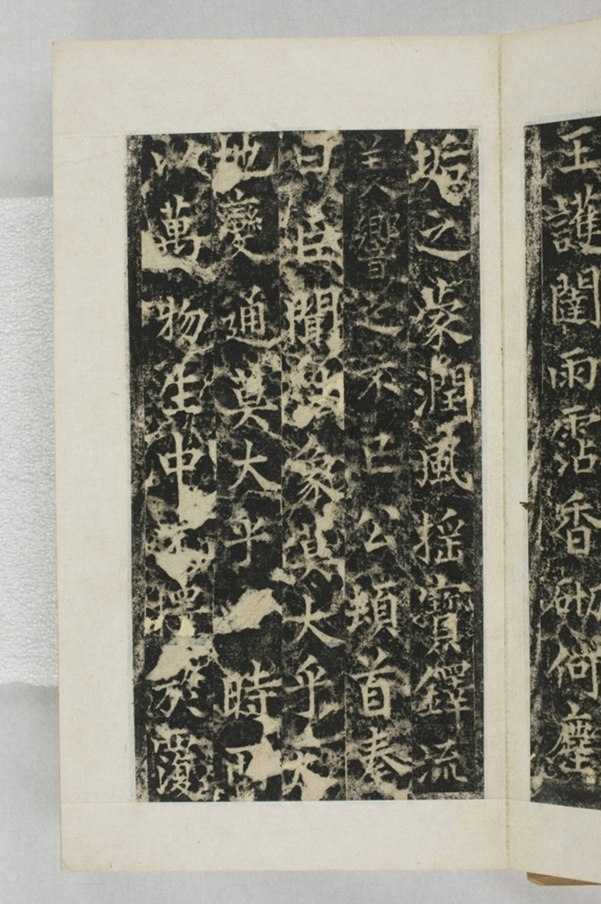 王護閣雨霑香砌何塵
垢之蒙潤風搖寶鐸流
美響之不已公頓首奏
曰臣聞法象莫大乎天
地變通莫大乎時
以萬物生中於覆